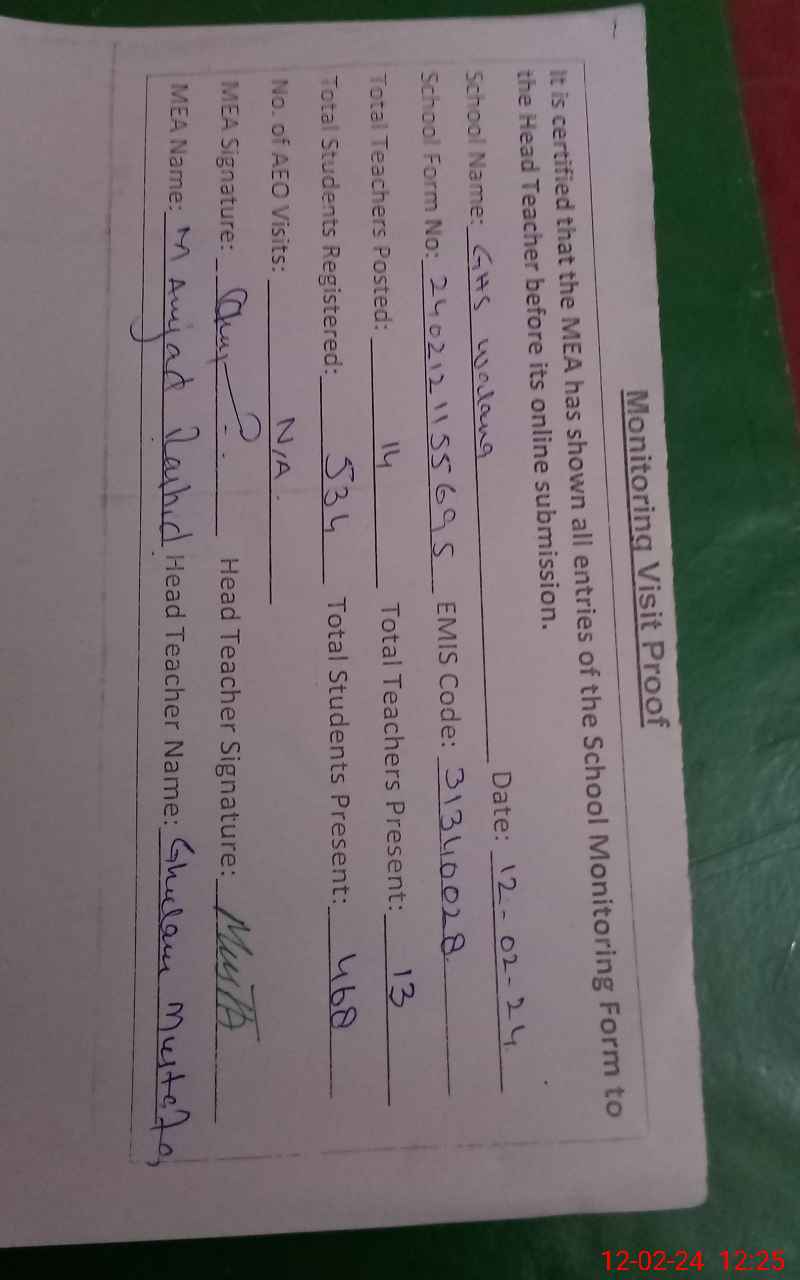 Monitoring Visit Proof
It is certified that the MEA has shown all entries of the School Monitoring Form to
the Head Teacher before its online submission.
School Name: GHS Walana Date: 12-02-24
School Form No: 2402121155695 EMIS Code: 31340028
Total Teachers Posted: 14 Total Teachers Present: 13
Total Students Registered: 534 Total Students Present: 460
No. of AEO Visits: N/A.
MEA Signature: Head Teacher Signature:
MEA Name: M Amjad Rashid Head Teacher Name: Ghulam Mustafa
12-02-24 12:25